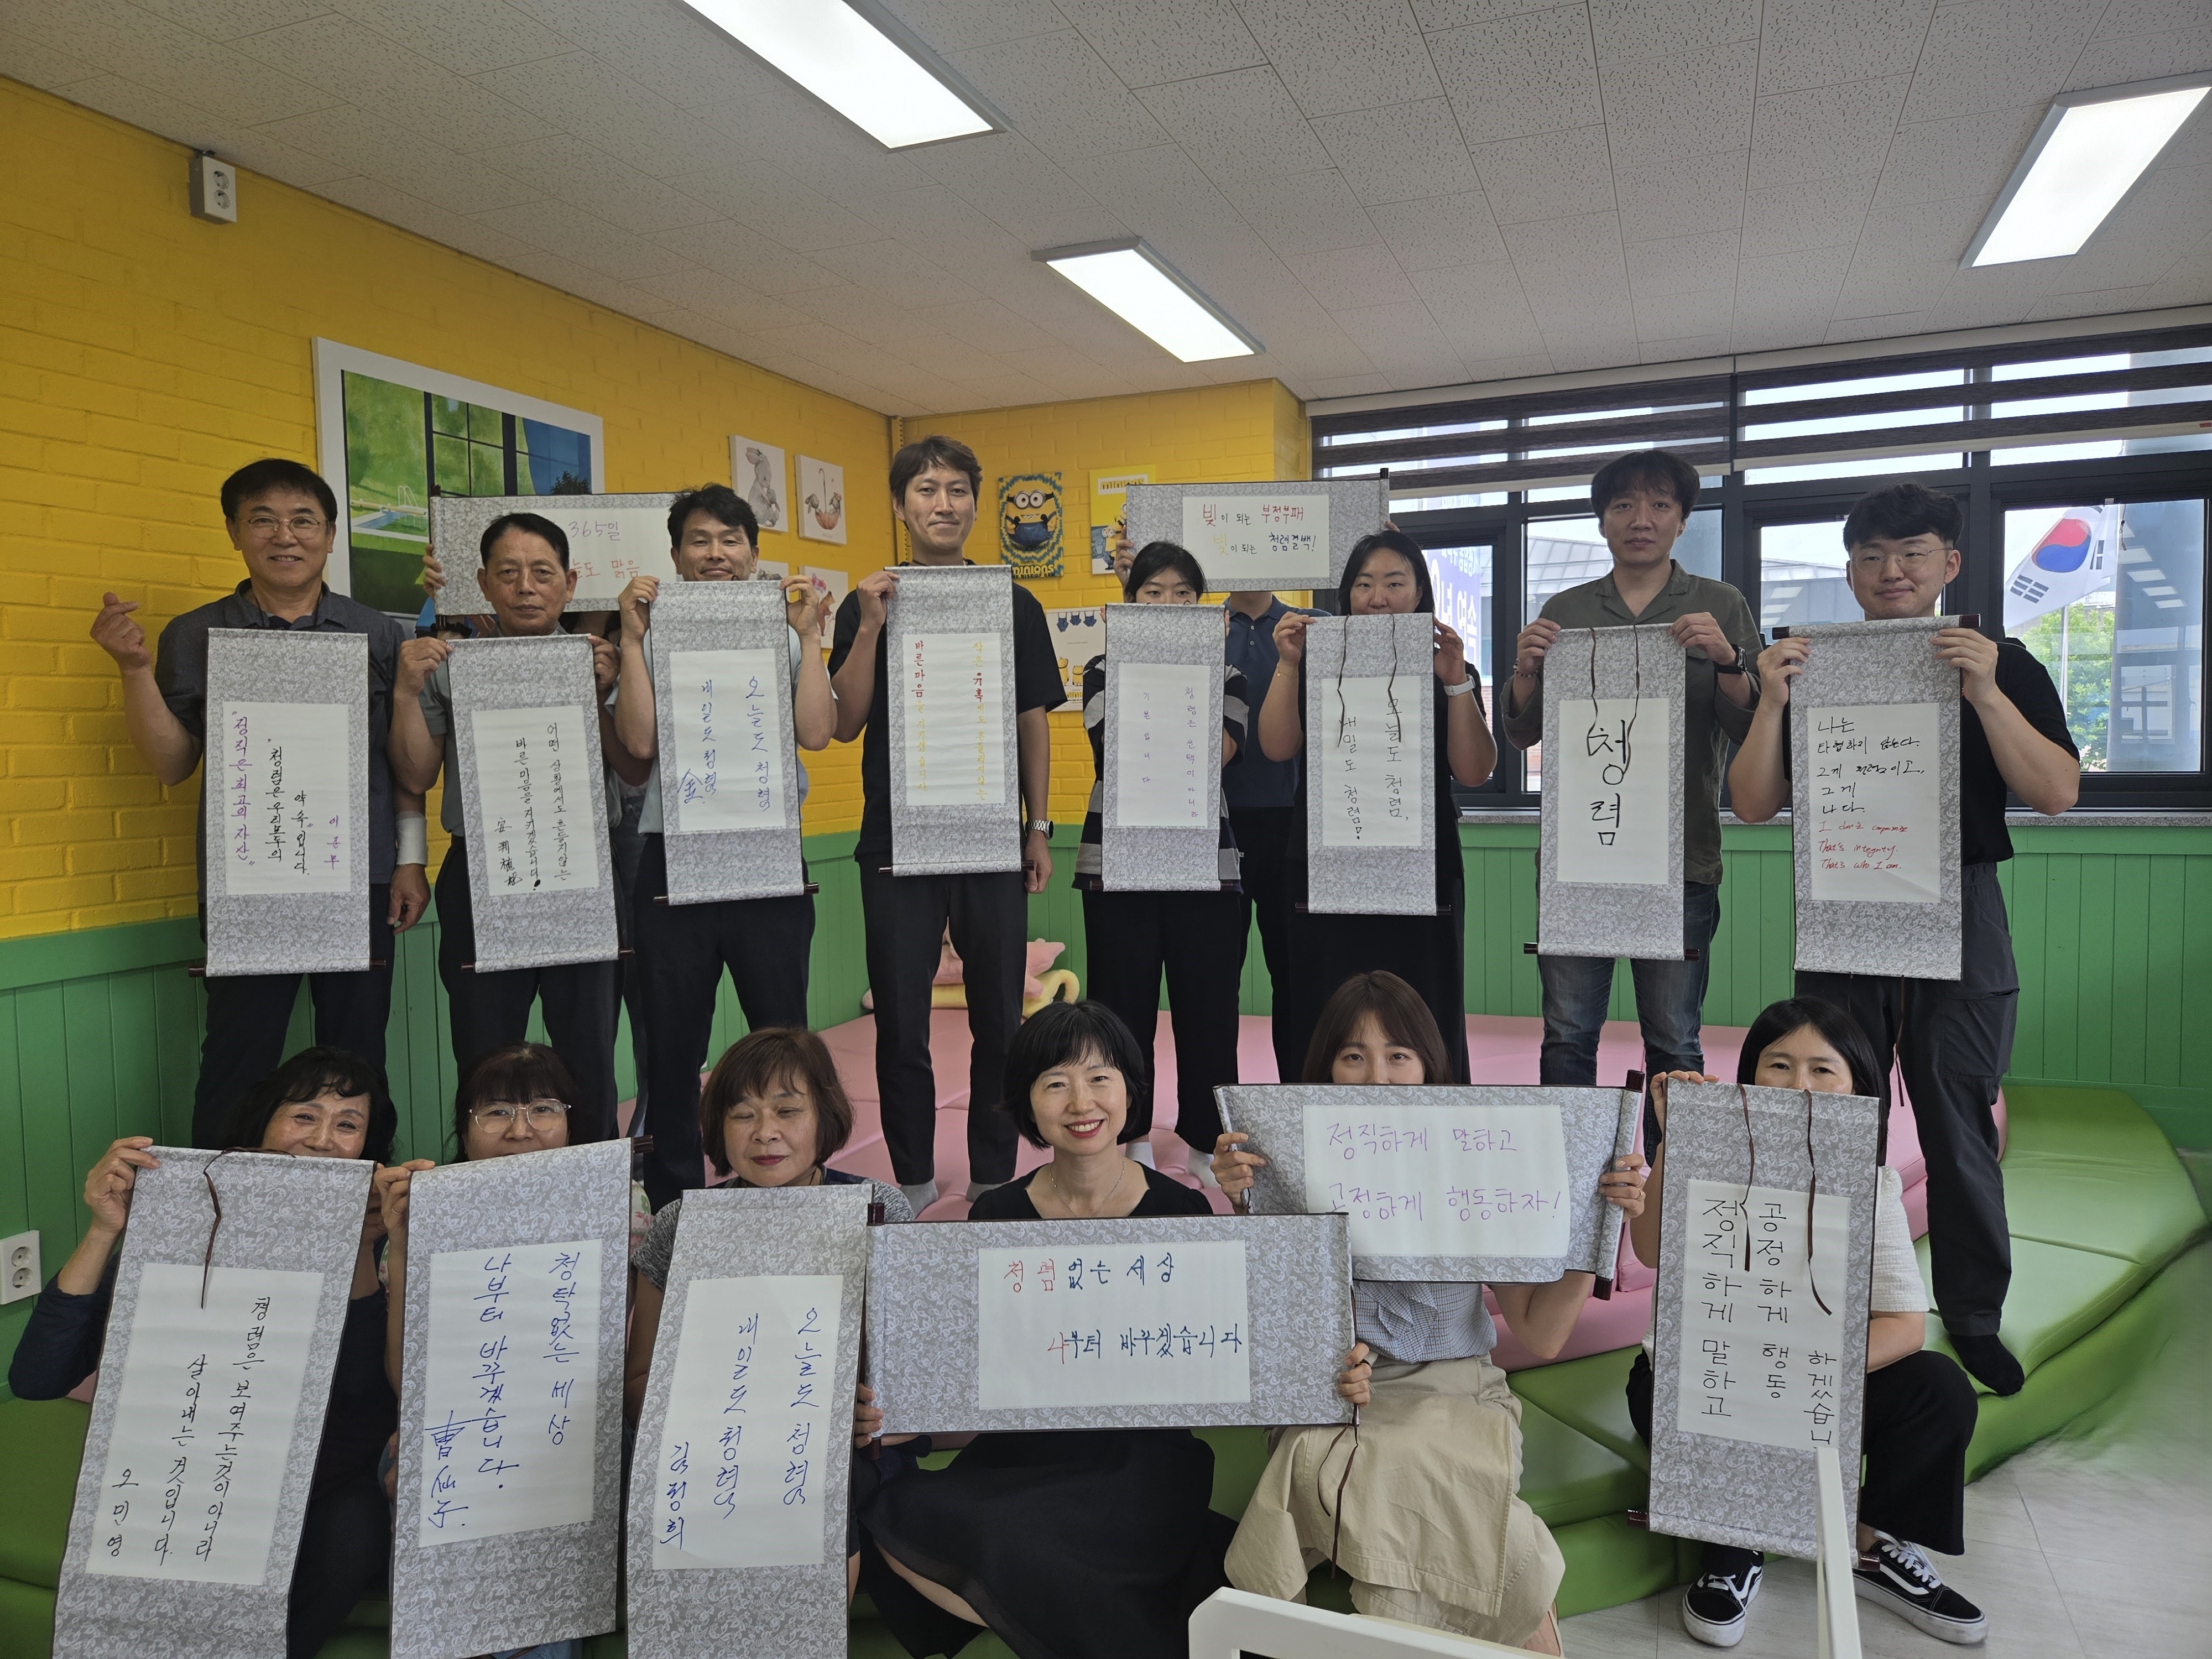 365일
늘도 맑음
빚이 되는 부정부패
빛이 되는 청렴결백!
"청렴은 우리모두의
약속"입니다.
"정직은 최고의 자산"
어떤 상황에서도 흔들리지않는
바른 마음을 지키겠습니다!
오늘도 청렴
내일도 청렴
金
작은 유혹
바른마음
청렴은 선택이 아니라
기본입니다
오늘도 청렴,
내일도 청렴!
청렴
나는
타협하지 않는다.
그게 청렴이고,
그게
나다.
I don't compromise
That's integrity.
That's who I am.
minions
청렴은 보여주는것이아니라
살아내는 것입니다.
오민영
청탁없는 세상
나부터 바꾸겠습니다.
오늘도 청렴
내일도 청렴
김정희
청렴없는 세상
나부터 바꾸겠습니다
정직하게 말하고
공정하게 행동하자!
정직하게 말하고
공정하게 행동
하겠습니